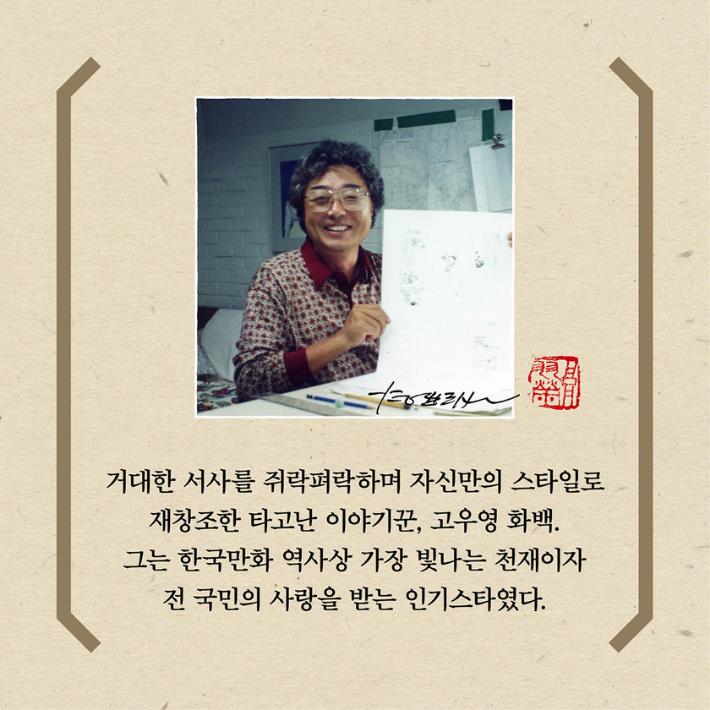 거대한 서사를 쥐락펴락하며 자신만의 스타일로
재창조한 타고난 이야기꾼, 고우영 화백.
그는 한국만화 역사상 가장 빛나는 천재이자
전 국민의 사랑을 받는 인기스타였다.